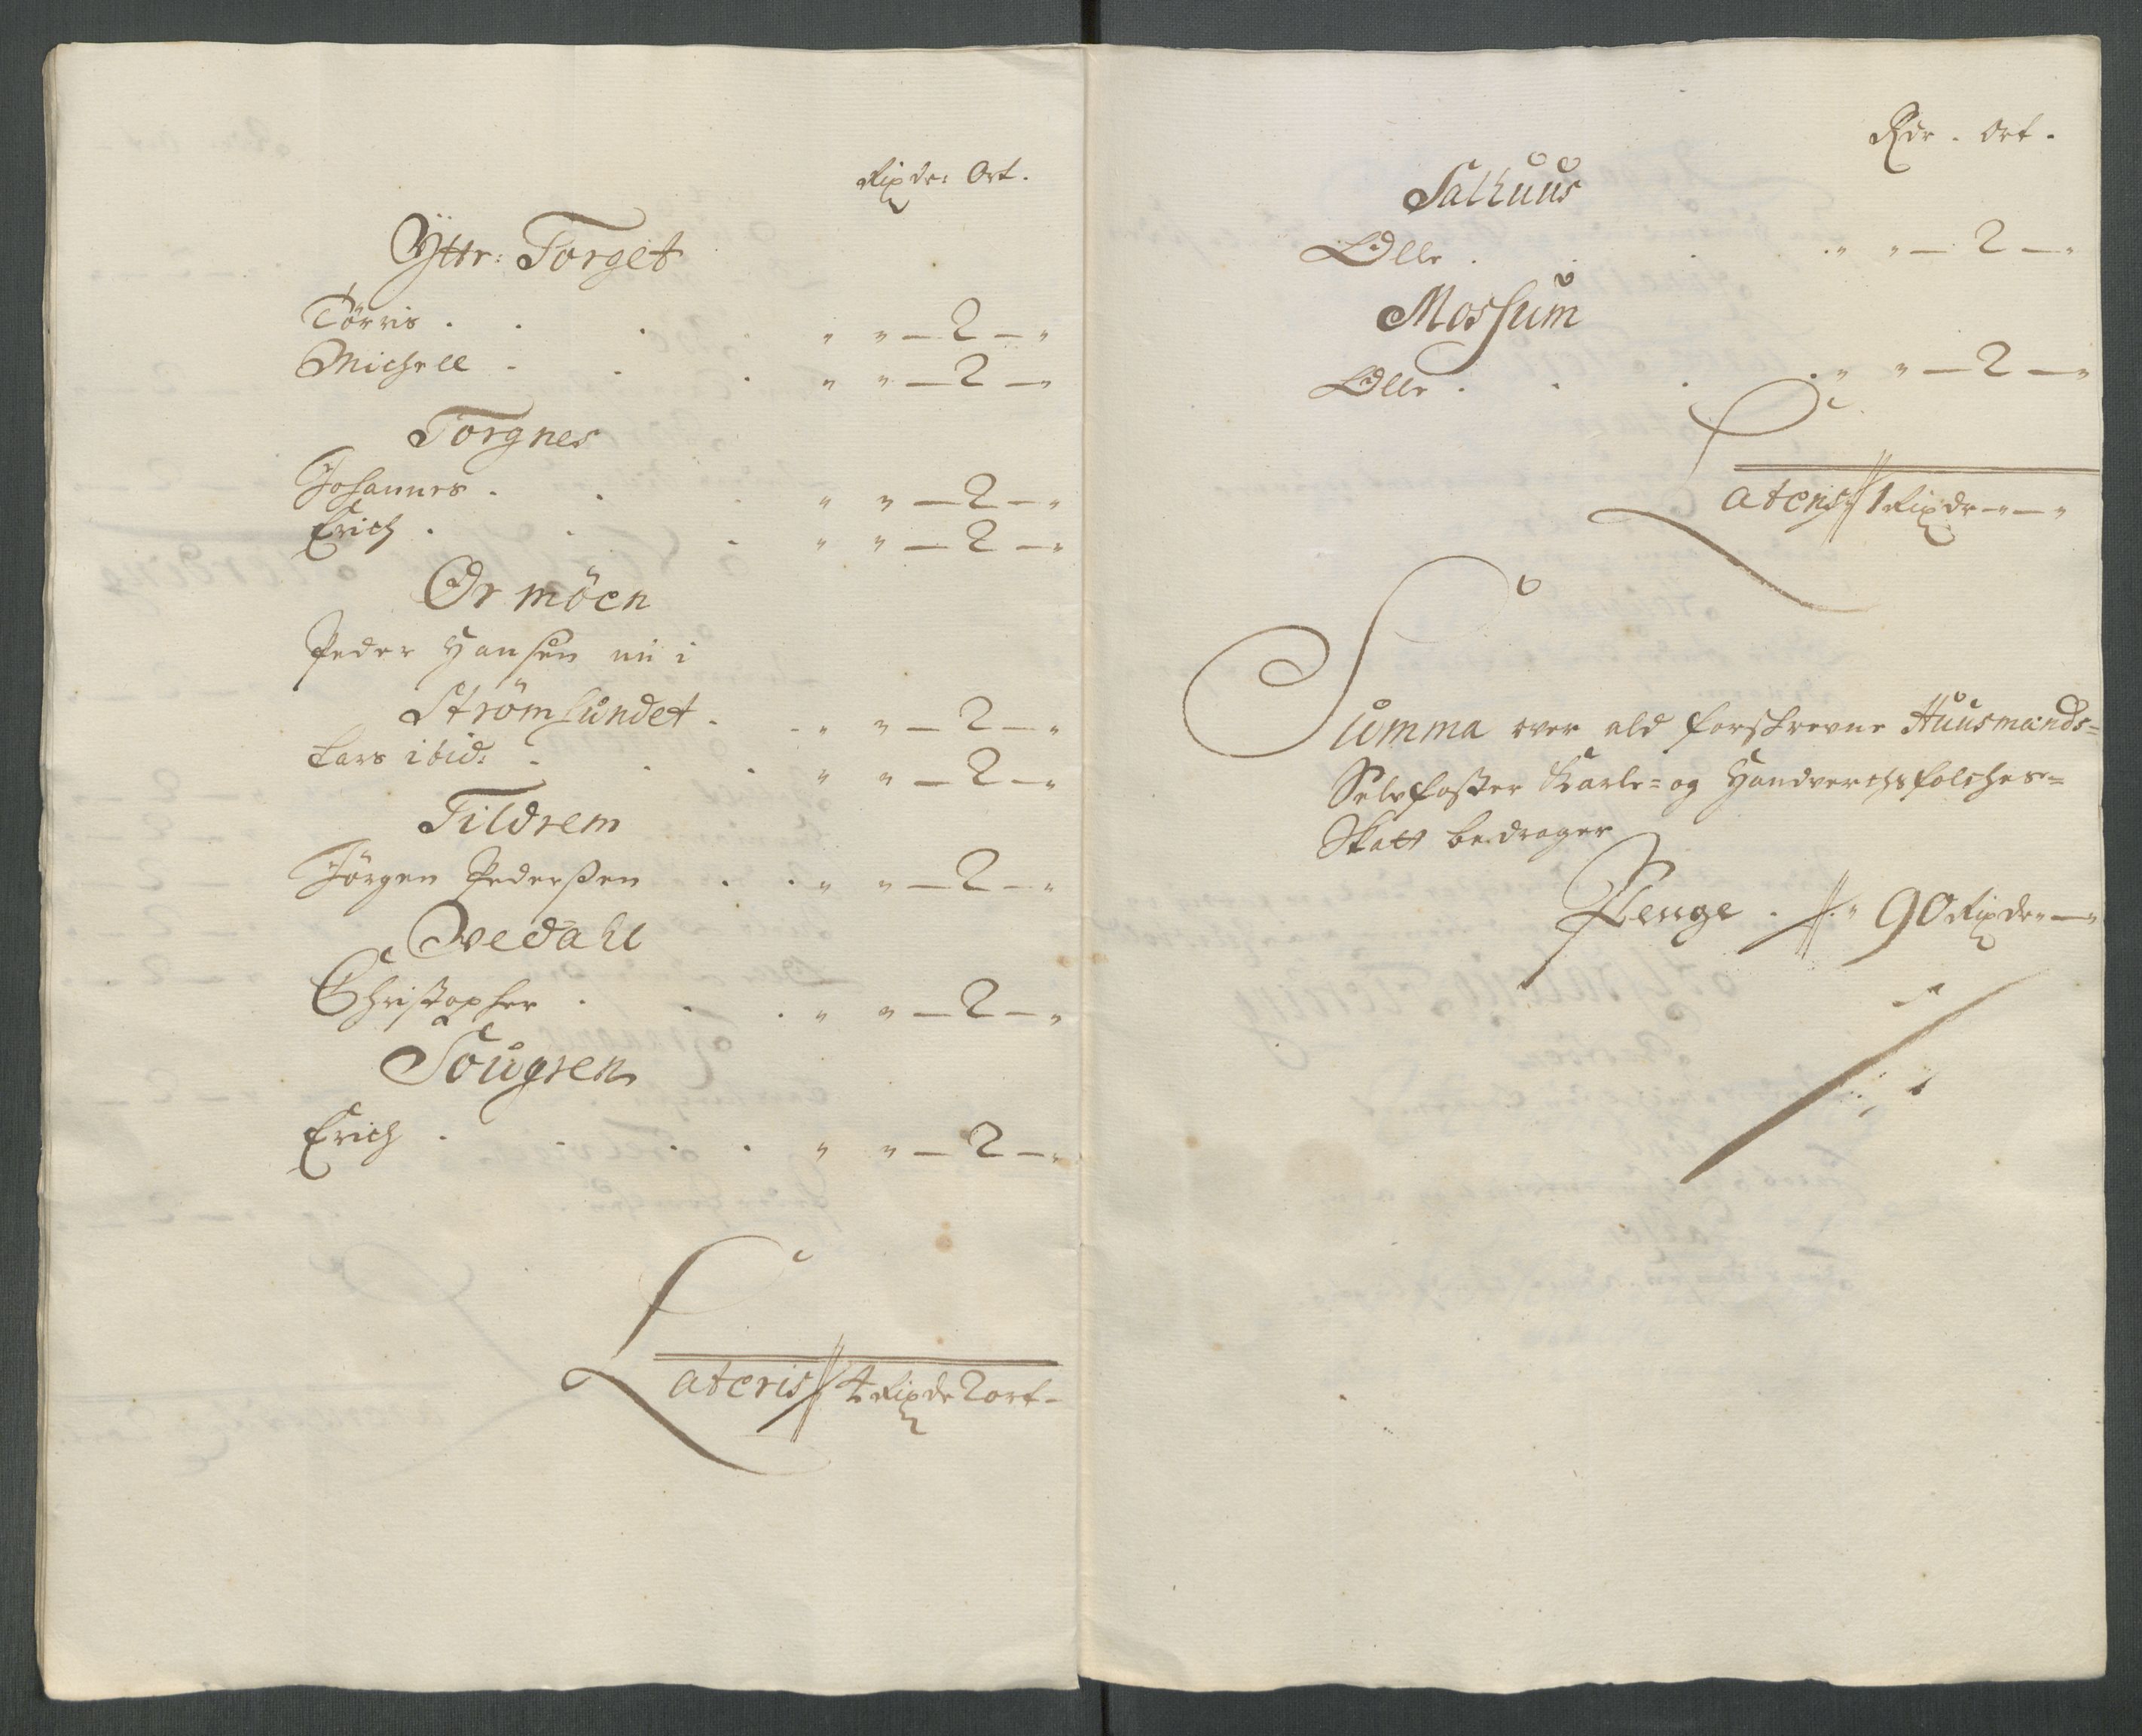 Rixdr: Ort.
Ÿttr: Torget
Törris . . . " " — 2 — "
Michell . . . " " — 2 — "
Torgnes
Johannes . . . " " — 2 — "
Erich . . . " " — 2 — "
Ormöen
Peder Hansen nu i
Strömsundet . . " " — 2 — "
Lars ibid: . . . " " — 2 — "
Tildrem
Jörgen Pederßen . . " " — 2 — "
Qvedahl
Christopher . . . " " — 2 — "
Sougren
Erich . . . . " " — 2 — "
Lateris 4 Rixdr 2 ort -
Rdr . Ort .
Salhuus
Olle . . . . " " — 2 — "
Mossum
Olle . . . . " " — 2 — "
Lateris 1 Rixdr - " — "
Summa over ald forskrevne Huusmands=
Selvfoster Karle= og Handverchsfolches=
Skatt bedrager
Penge . " 90 Rixdr " — "